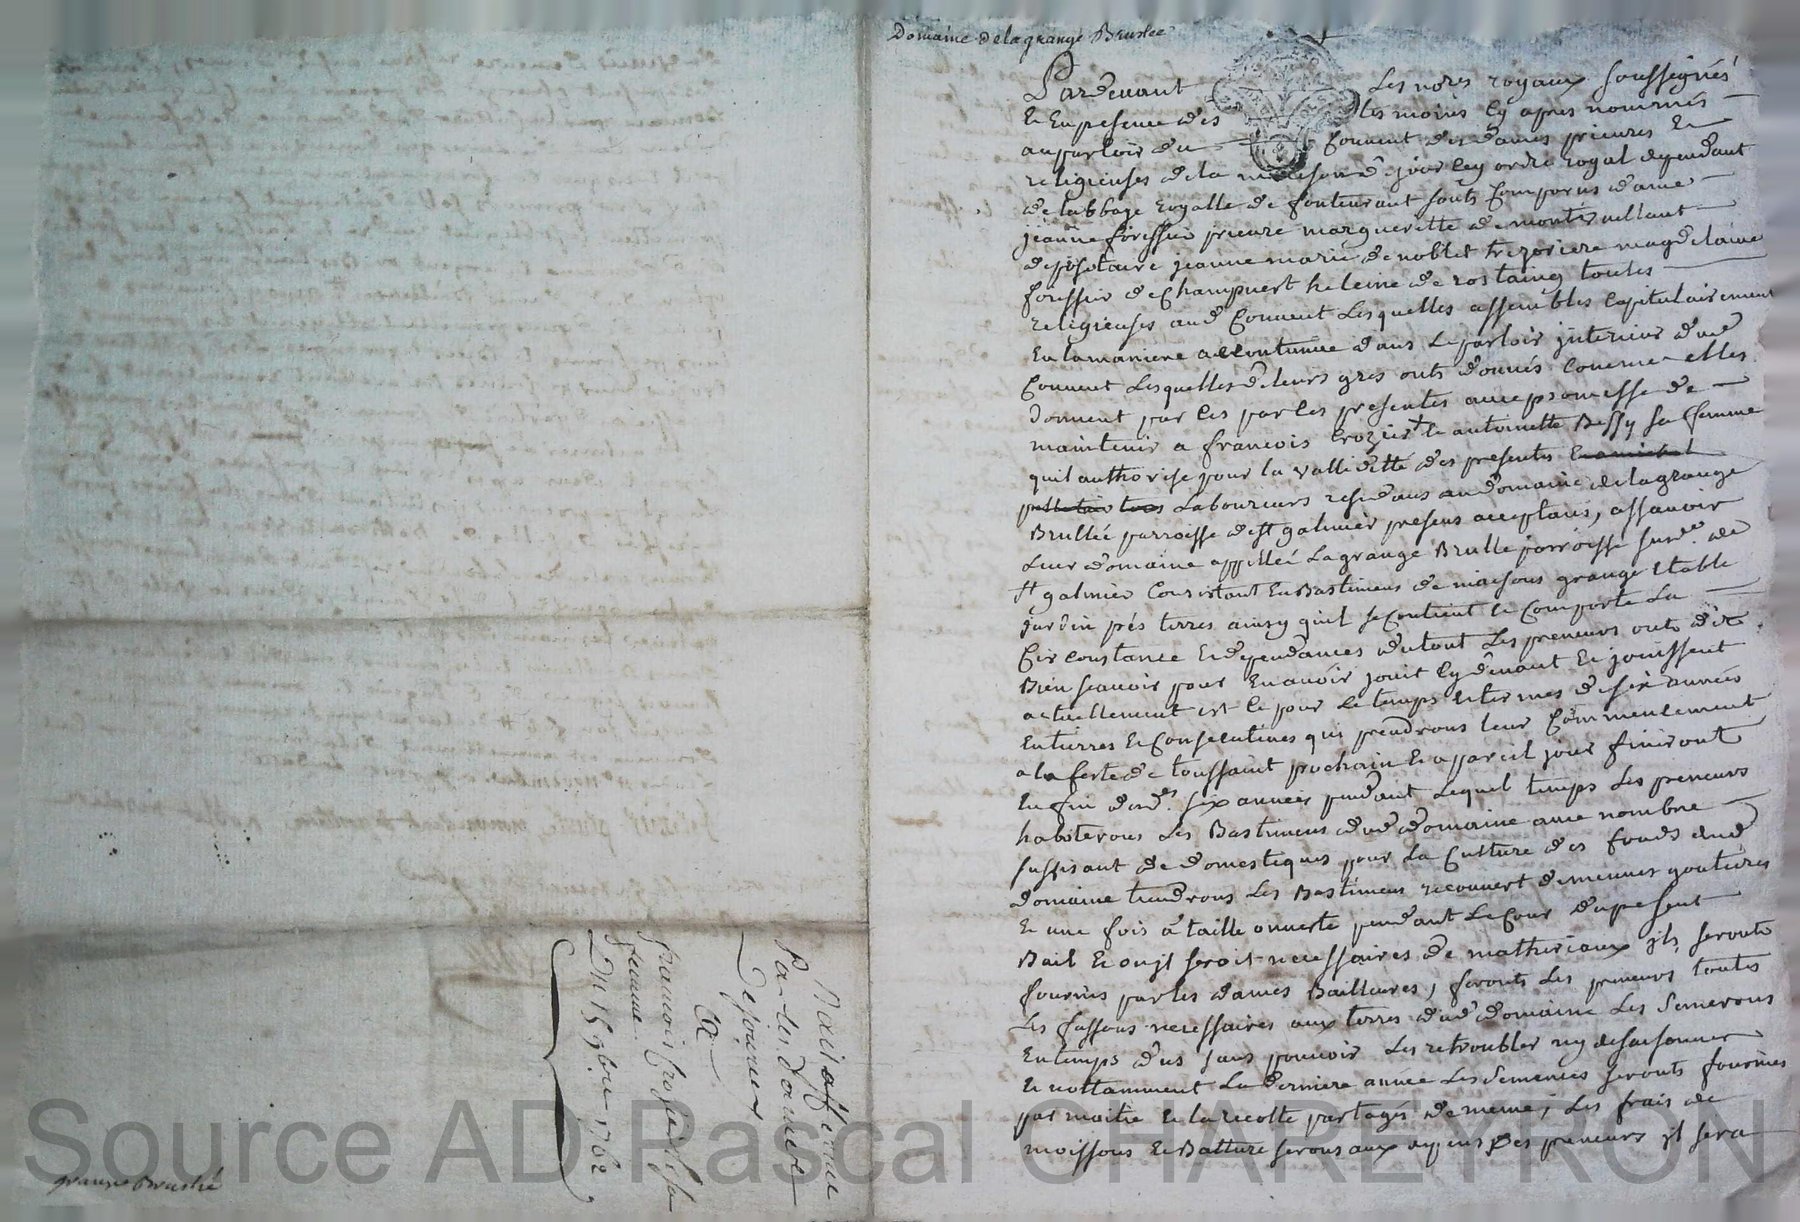 Domaine delagrange Bruslee
Pardevant Les nores royaux soussignés
Et Enpresence des tesmoins cy apres nommés
auparloir du Couvent des dames prieures Et
religieuses de la ordre royal dependant
delabbaye royalle de fonteuraut sonts Comparus dame
jeanne prieure margueritte de
depositaire jeanne marie denoblet trezoriere magdelaine
de Champuert heleine de rostaing toutes
religieuses aud Convent Lesquelles assembles Capitulairement
En lamaniere accoutumee dans Le parloir jnterieur dud
Couvent Lesquelles deleurs gres onts donnés comme elles
donnent par ces par les presentes avec promesse de
maintenir a francois Crozier et antoinette Bessy sa femme
quil authorise pour la valliditté des presentes
Laboureurs residans audomaine delagrange
Brullée parroisse de st galmier presens acceptans, assavoir
Leur domaine appellée Lagrange Brulle parroisse susd. de
st galmier Consistant En Bastimens de maisons grange Etable
jardin prés terres ainsy quil se Contient et Comporte Sa
Circonstance Et dependances dutout Les preneurs onts dit
Bien sçauoir pour En avoir jouit Cy devant Et jouissent
actuellement est ce pour Le temps et termes de six années
Entierres Et Consecutives qui prendrons leur Commencement
a la feste de toussaint prochain Et a pareil jour finiront
En fin desd. six années pendant Lequel temps Les preneurs
habiterons Les Bastimens dud domaine avec nombre
suffisant de domestiques pour La Culture des fonds dud
domaine tiendrons Les Bastimens recouvert de mennes goutieres
Et une fois a taille ouverte pendant Le Cour du present
Bail Et ou jl seroit necessaires de matheriaux jls seronts
fournis par les dames Bailleures, feronts Les preneurs toutes
Les fassons necessaires aux terres dud domaine Les Semerons
En temps dus sans pouvoir Les retroubler ny desaisonner
Et nottamment La derniere année Les Semences seronts fournies
par moitie Et la recolte partagés de meme, Les frais de
moissons Et Batture serons aux depens des preneurs jl sera
Bail a ferme
Par les Dames
De jourcey
A
francois Crozier et sa
femme
Du 15 9bre 1762
grange Bruslé
Source AD Pascal CHAREYRON